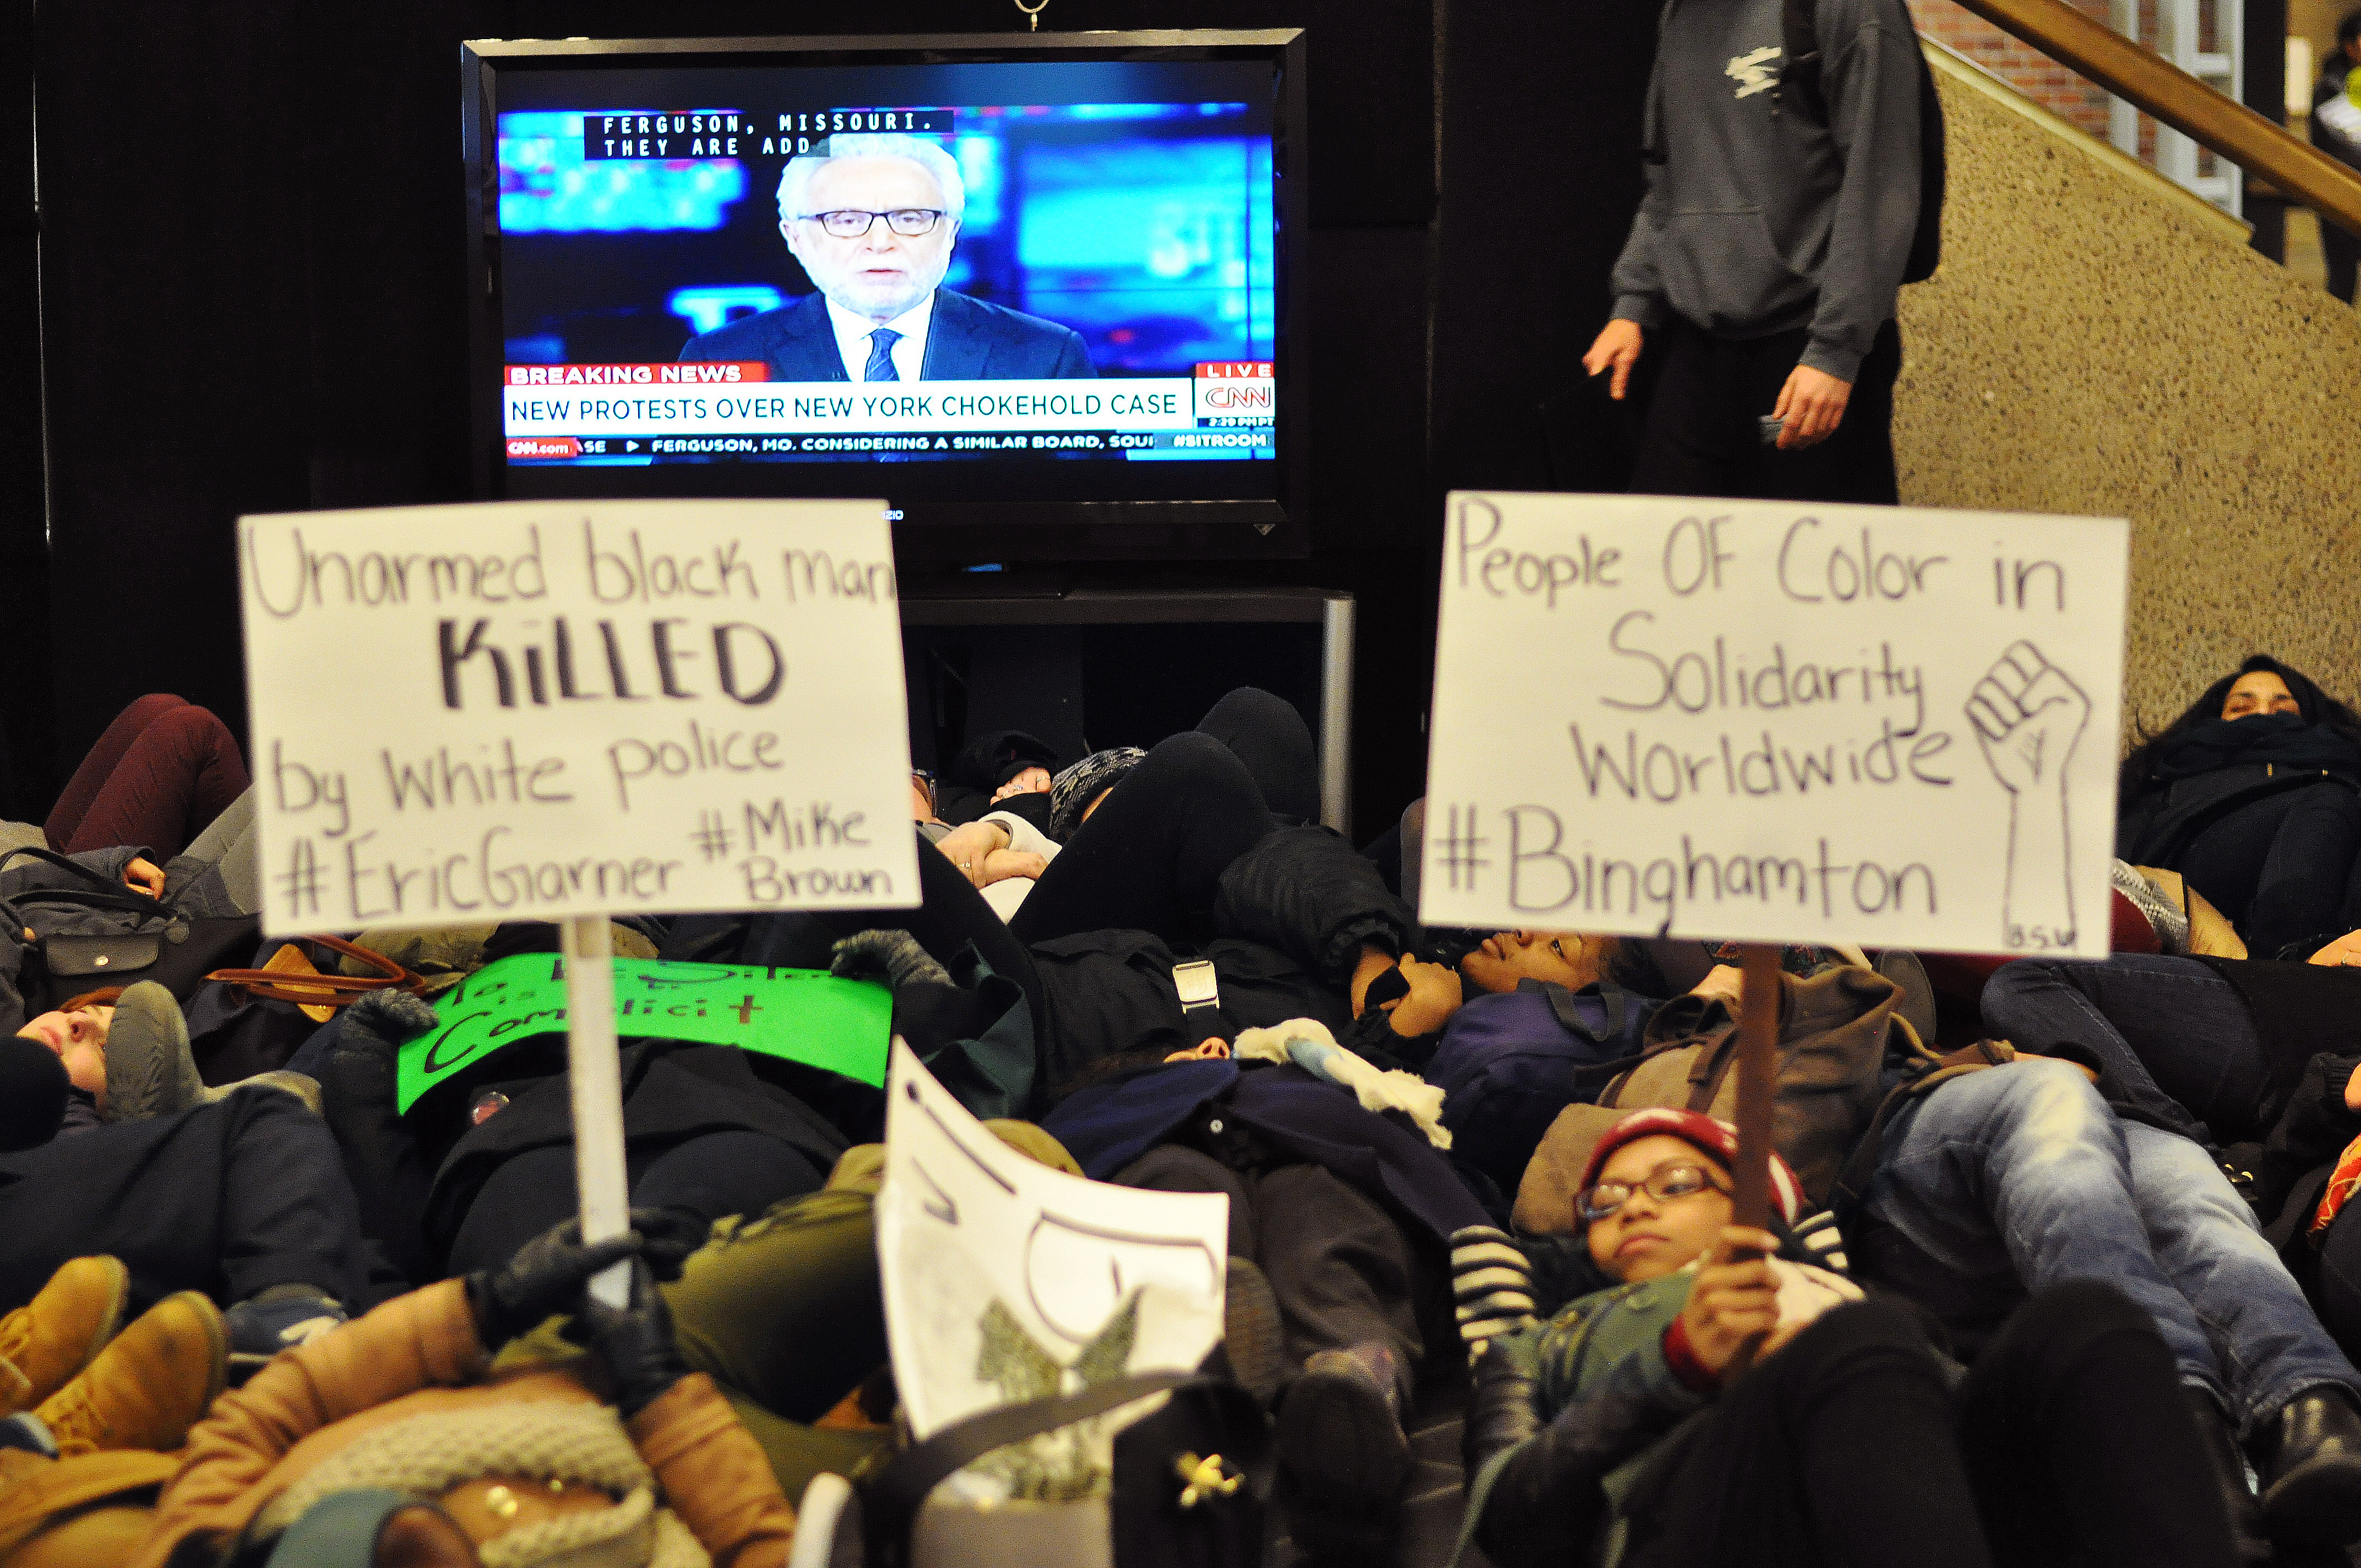 FERGUSON, MISSOURI.
THEY ARE ADD
BREAKING NEWS
LIVE
CNN
NEW PROTESTS OVER NEW YORK CHOKEHOLD CASE
2:29 PM PT
CNN.com
SE ▶ FERGUSON, MO. CONSIDERING A SIMILAR BOARD, SOU
#SITROOM
Unarmed black man
KiLLED
by white police
#EricGarner
#Mike
Brown
People OF Color in
Solidarity
Worldwide
#Binghamton
B.S.U
To Be Silent
is
Complicit